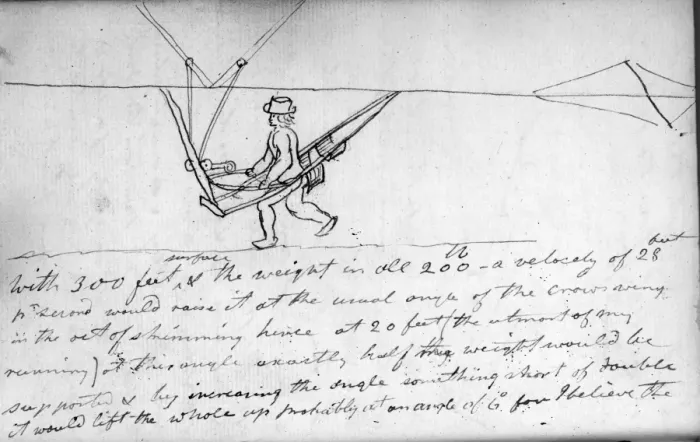 With 300 feet surface & the weight in all 200 - a velocity of 28
pr second would raise it at the usual angle of the crows wing
in the act of skimming hence at 20 feet (the utmost of my
running) at this angle exactly half the weight would be
supported & by increasing the angle something short of double
it would lift the whole up probably at an angle of 6° for I believe the